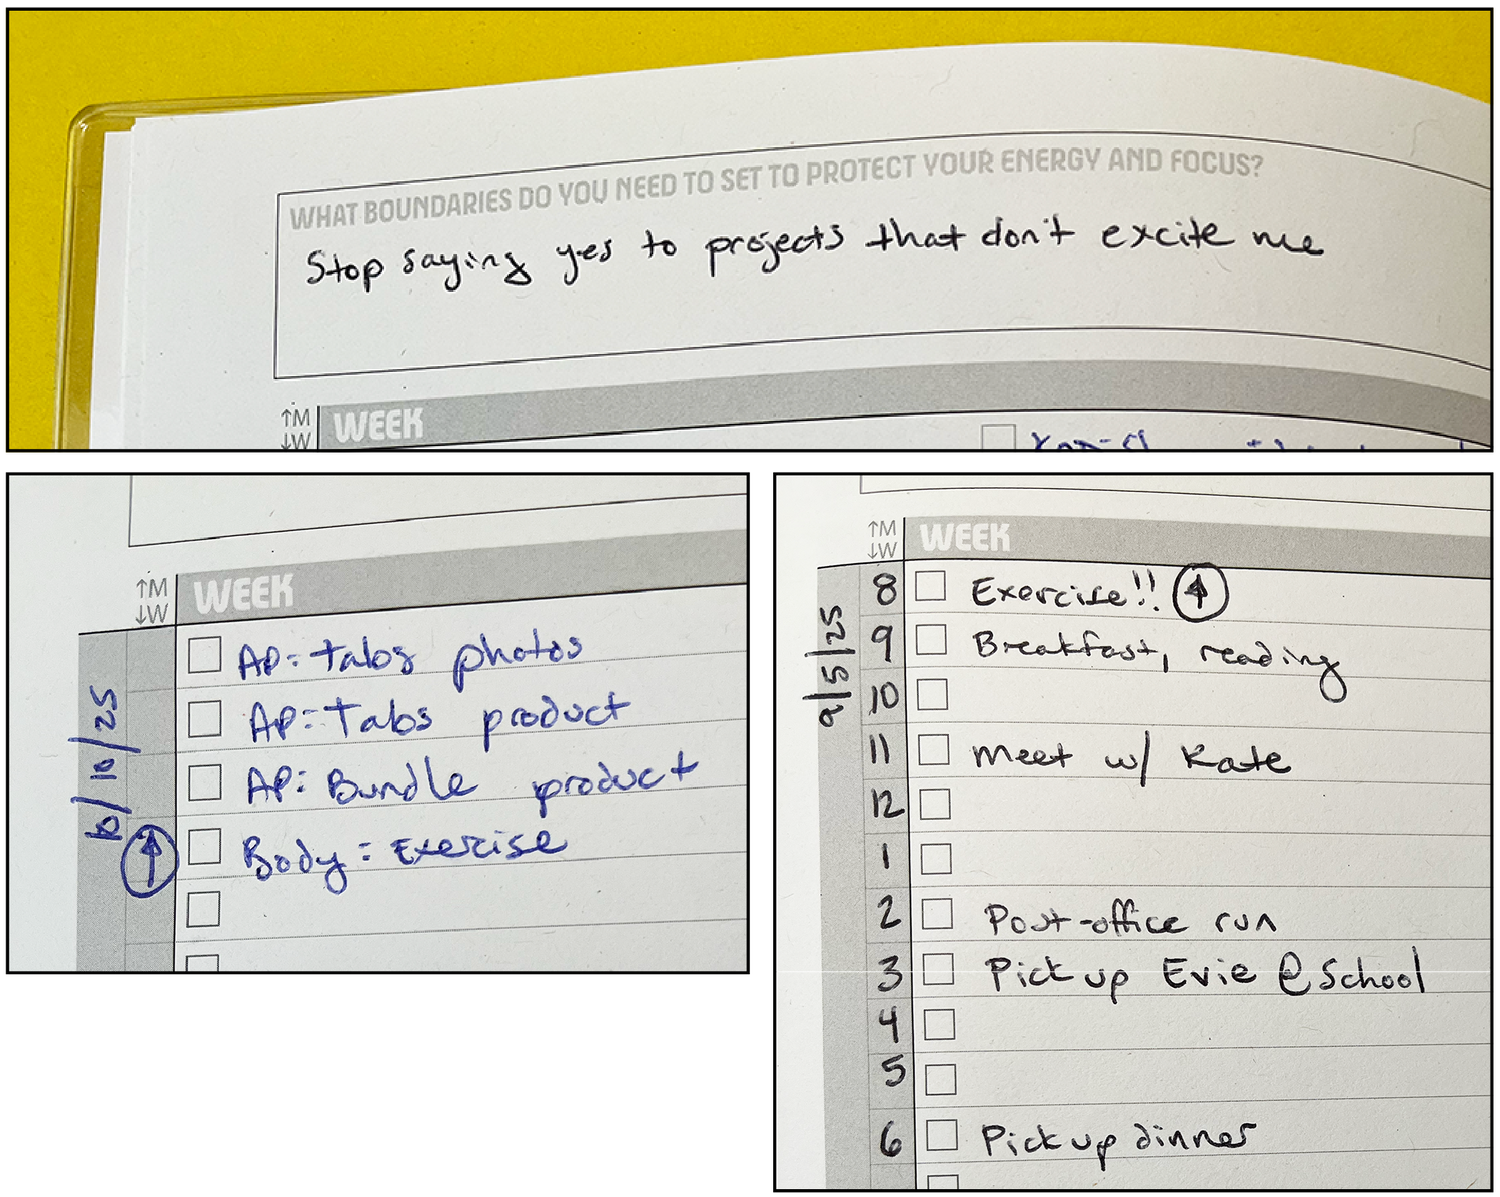 WHAT BOUNDARIES DO YOU NEED TO SET TO PROTECT YOUR ENERGY AND FOCUS?
Stop saying yes to projects that don't excite me
↑M
↓W
WEEK
↑M
↓W
WEEK
10/25
AP: Tabs photos
AP: Tabs product
AP: Bundle product
↑
Body: Exercise
↑M
↓W
WEEK
9/5/25
8 Exercise!! ↑
9 Breakfast, reading
10
11 Meet w/ Kate
12
1
2 Post-office run
3 Pick up Evie @ School
4
5
6 Pick up dinner